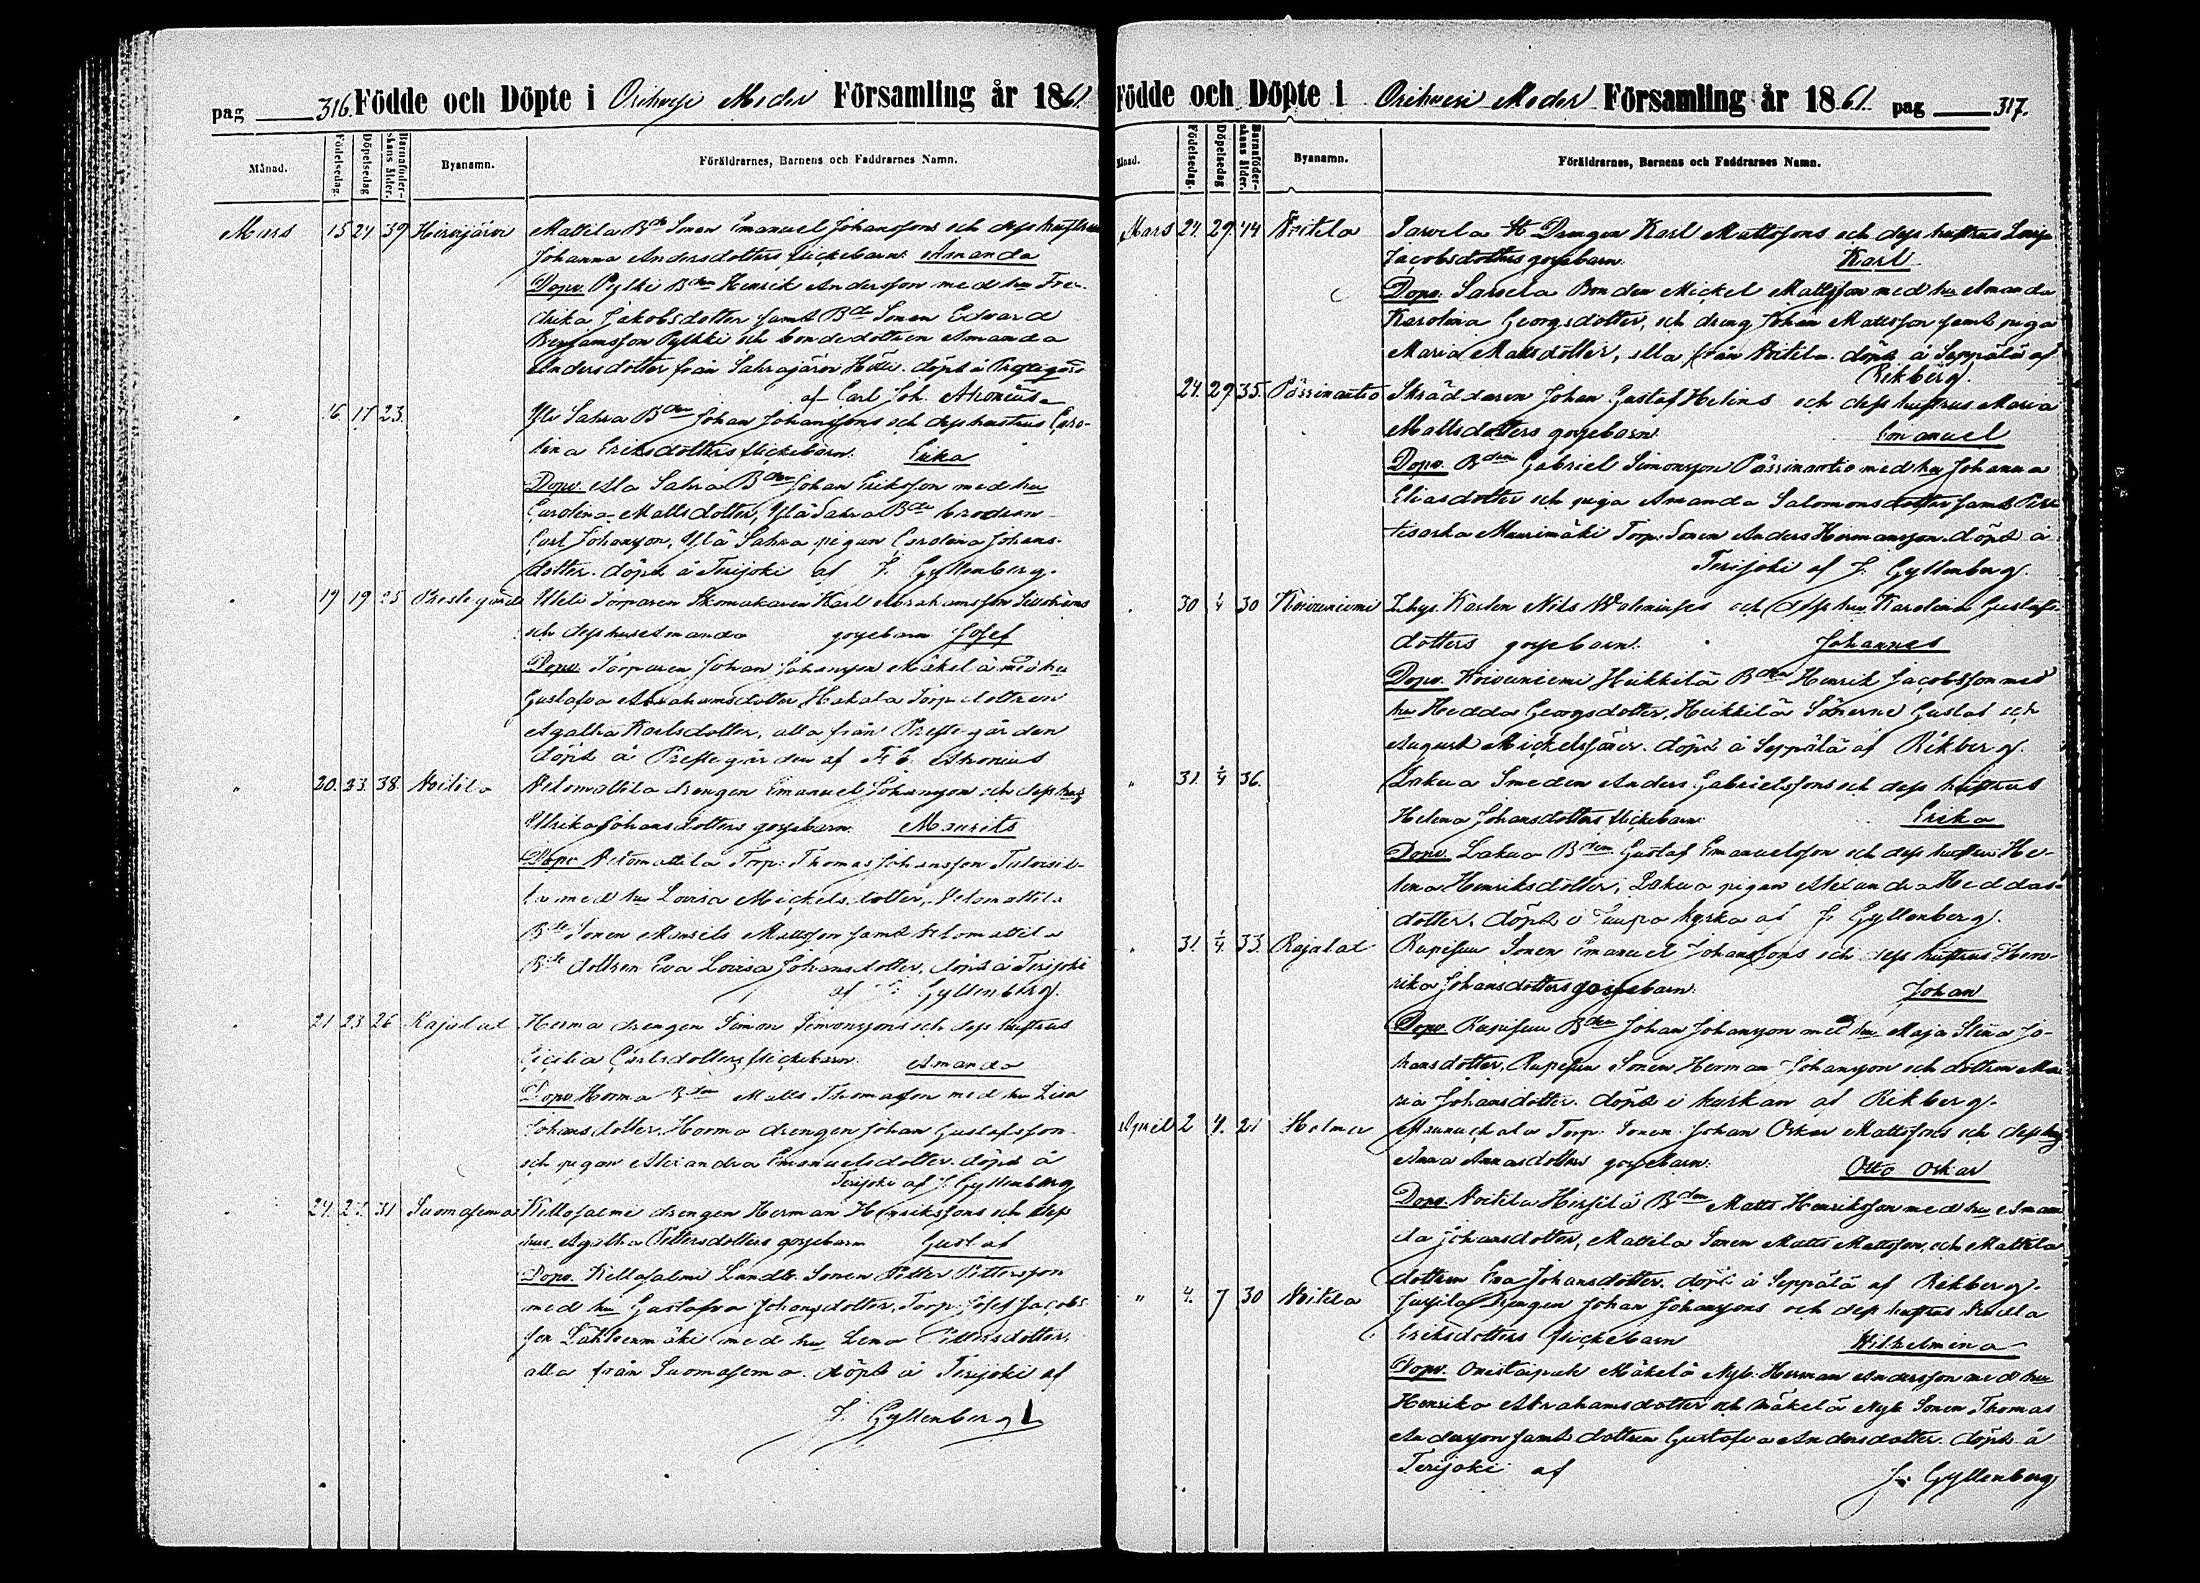 pag 316. Födde och Döpte i Orihvesi Moder Församling år 1861.
Månad. Födelsedag. Döpelsedag Barnaföder-skans ålder. Byanamn. Föräldrarnes, Barnens och Faddrarnes Namn.
Mars 15 24 39 Hirvijärvi Mattila Bde Sonen Emanuel Johanssons och dess hustrus
Johanna Andersdotters flickebarn Amanda
Dopv. Pylki Bden Henrik Andersson med hu Fre-
drika Jakobsdotter samt Bde Sonen Edvard
Benjamsson Pylkki och bondedottren Amanda
Andersdotter från Sahrajärvi döpt å Prestegård
af Carl Joh. Aronius
16. 17 23. Yli Sahra Bden Johan Johanssons och dess hustrus Caro-
lina Eriksdotters flickebarn. Erika
Dopv. Ala Sahra Bden Johan Eriksson med hu
Carolina Mattsdotter, Ylä Sahra Bde brodren
Carl Johansson, Ylä Sahra pigan Carolina Johans-
dotter. döpt å Terijoki af J. Gyllenberg.
19 19 25 Prestegården Uleli Torparen Skomakaren Karl Abrahamsson
och dess hu Amanda gossebarn Josef
Dopv. Torparen Johan Johansson Mäkelä med hu
Gustafva Abrahamsdotter, Hakala Torp. dottren
Agatha Karlsdotter, alla från Prestegården
döpt å Prestegården af Aronius
20. 23. 38. Voitila Aromattila drengen Emanuel Johansson och dess hus
Ulrika Johansdotters gossebarn. Maurits
Dopv Torp: Thomas Johansson
med hu Lovisa Mickelsdotter,
Bde Sonen Mattsson samt
Bde dottren Eva Lovisa Johansdotter, döpt å Terijoki
af J. Gyllenberg.
21 23 26 Rajalat Horma drengen Simon Simonssons och dess hustrus
Cicilia Carlsdotters flickebarn. Amanda
Dopv. Horma Bden Matts Thomasson med hu Lisa
Johansdotter, Horma drengen Johan Gustafsson
och pigan Alexandra Emanuelsdotter. döpt å
Terijoki af J. Gyllenberg
24. 31 Suomasema Kellosalmi drengen Herman Henrikssons och dess
hus Agatha Pettersdotters gossebarn Gustaf
Dopv. Kellosalmi Landb. Sonen Petter Pettersson
med hu Gustafva Johansdotter, Torp. Josef Jacobs-
son Lähteenmäki med hu Lena Pettersdotter,
alla från Suomasema. döpt å Terijoki af
J. Gyllenberg
Födde och Döpte i Orihvesi Moder Församling år 1861. pag 317.
Månad. Födelsedag. Döpelsedag Barnaföder-skans ålder. Byanamn. Föräldrarnes, Barnens och Faddrarnes Namn.
Mars 24. 29. 44 Voitila Sarvela Drengen Karl Mattssons och dess hustrus Lovisa
Jacobsdotters gossebarn. Karl
Dopv. Sarvela Bonden Mickel Mattsson med hu Amanda
Karolina Georgsdotter, och dreng Johan Mattsson samt piga
Maria Mattsdotter, alla från Voitila. döpt å Seppälä af
Rikberg.
24. 29. 35. Pässinautio Skräddaren Johan Gustaf Helins och dess hustrus Maria
Mattsdotters gossebarn. Emanuel
Dopv. Bden Gabriel Simonsson Pässinautio med hu Johanna
Eliasdotter och piga Amanda Salomonsdotter samt
Maurimäki Torp: Sonen Anders Hermansson. döpt å
Terijoki af J. Gyllenberg.
30 1/4 30 Koivuniemi Inhys. Karlen Nils Waleniuses och dess hu Karolina Gustafs-
dotters gossebarn. Johannes
Dopv. Koivuniemi Heikkilä Bden Henrik Jacobsson med
hu Hedda Georgsdotter, Heikkilä Sönerne Gustaf och
August Mickelssöner. döpt å Seppälä af Rikberg.
" 31. 1/4 36. Lakua Smeden Anders Gabrielssons och dess hustrus
Helena Johansdotters flickebarn. Erika
Dopv. Lakua Bden Gustaf Emanuelsson och dess hustru He-
lena Henriksdotter, Lakua pigan Alexandra Heddas-
dotter. döpt i kyrka af J. Gyllenberg.
31. 1/4. 33. Rajalat Rupisuu Sonen Emanuel Johanssons och dess hustrus Hen-
rika Johansdotters gossebarn. Johan
Dopv. Rupisuu Bden Johan Johansson med hu Maja Stina Jo-
hansdotter, Rupisuu Sonen Herman Johansson och dottren Ma-
ria Johansdotter. döpt i kyrkan af Rikberg.
April 2 4. 21 Holma Torp. Sonen Johan Oskar Mattssons och dess hus
Anna Annasdotters gossebarn. Otto Oskar
Dopv. Voitila Bden Matts Henriksson med hu Aman-
da Johansdotter, Mattila Sonen Matts Mattsson, och Mattila
dottren Eva Johansdotter. döpt å Seppälä af Rikberg.
" 4. 7 30 Voitila Jussila Drengen Johan Johanssons och dess hustrus
Eriksdotters flickebarn Wilhelmina
Dopv. Onistaipale Mäkelä Nyb: Herman Andersson med hu
Henrika Abrahamsdotter och Mäkelä Nyb Sonen Thomas
Andersson samt dottren Gustafva Andersdotter. döpt å
Terijoki af J. Gyllenberg